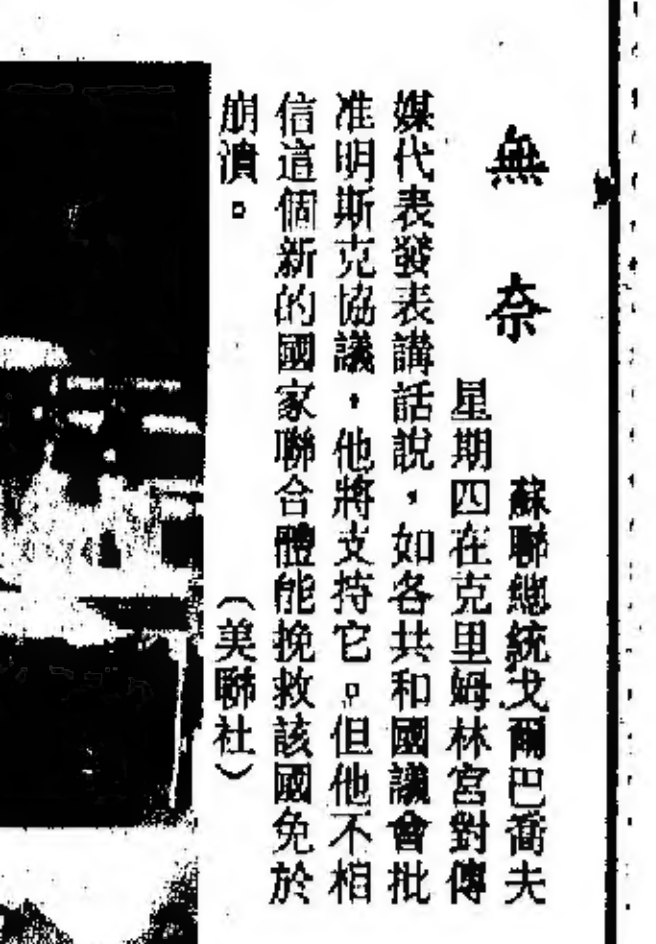 無奈
蘇聯總統戈爾巴喬夫
星期四在克里姆林宮對傳
媒代表發表講話說，如各共和國議會批
准明斯克協議，他將支持它。但他不相
信這個新的國家聯合體能挽救該國免於
崩潰。（美聯社）